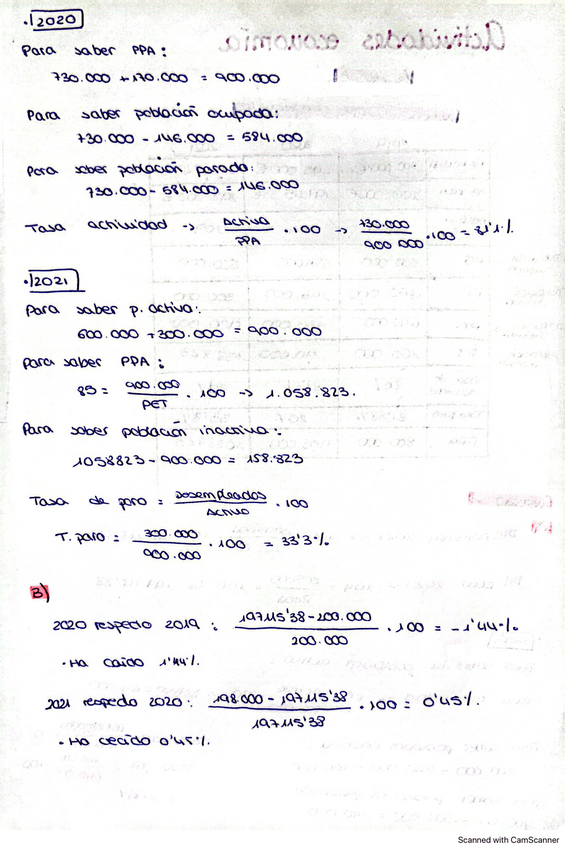 ./2020
Para saber PPA:
730.000 + 170.000 = 900.000
Para saber población ocupada:
730.000 - 146.000 = 584.000
Para saber población parada:
730.000 - 584.000 = 146.000
Tasa actividad -> Activa/PPA · 100 -> 730.000/900 000 · 100 = 81'1%
./2021
Para saber p. activa:
600.000 + 300.000 = 900.000
Para saber PPA:
85 = 900.000/PET · 100 -> 1.058.823.
Para saber población inactiva:
1058823 - 900.000 = 158.823
Tasa de paro = Desempleados/Activo · 100
T. paro = 300.000/900.000 · 100 = 33'3%
B)
2020 respecto 2019: 197115'38 - 200.000/200.000 · 100 = -1'44%
· Ha caído 1'44%.
2021 respecto 2020: 198.000 - 197115'38/197115'38 · 100 = 0'45%.
· Ha cecido 0'45%.
Scanned with CamScanner